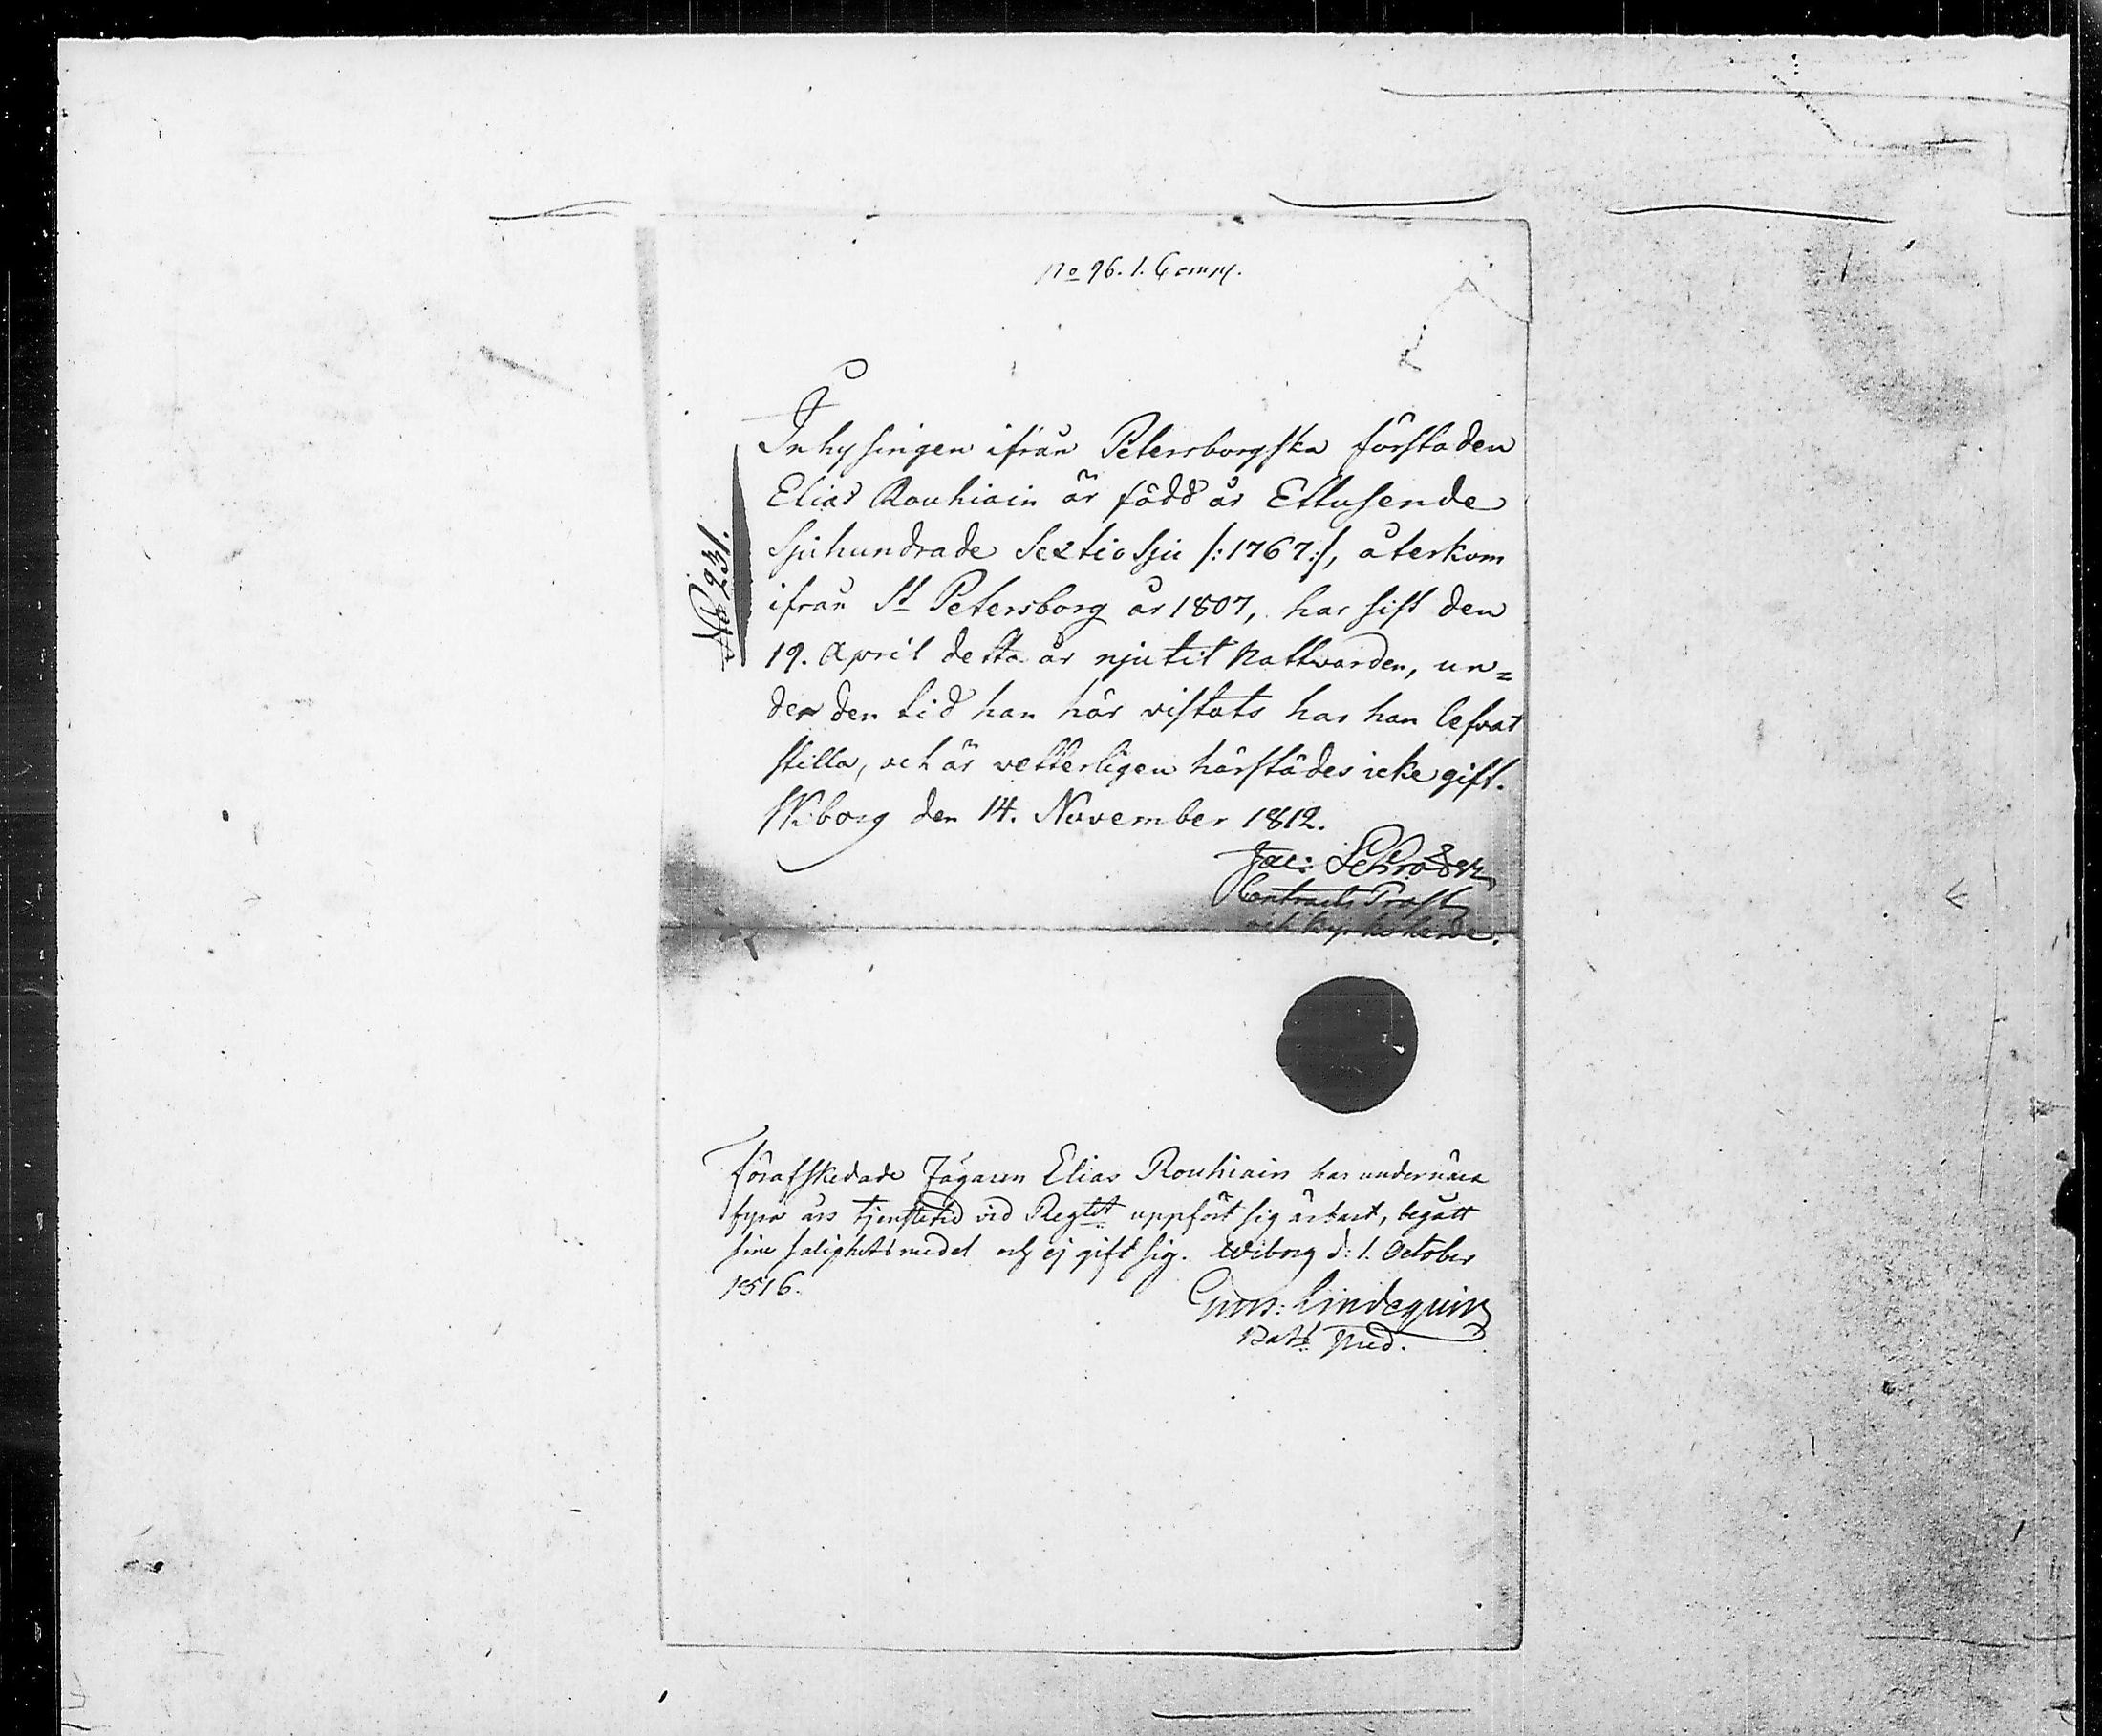 No 96. 1. Comp.
No 231.
Inhysingen ifrån Petersborgska förstaden
Elias Rouhiain är född år Ettusende
sjuhundrade Sextiosju /:1767:/, återkom
ifrån St Petersborg år 1807, har sist den
19. April detta år njutit Nattvarden, un=
der den tid han här vistats har han lefvat
stilla, och är vetterligen härstädes icke gift.
Wiborg den 14. November 1812.
Jac: Schröder
Contracts Prost
och kyrkoherde.
Förafskedade Jägaren Elias Rouhiain har under nära
fyra års tjenstetid vid Regtet uppfört sig ärbart, begått
sine salighetsmedel och ej gift sig. Wiborg d: 1. October
1816.
Lindequist
Bats Pred.